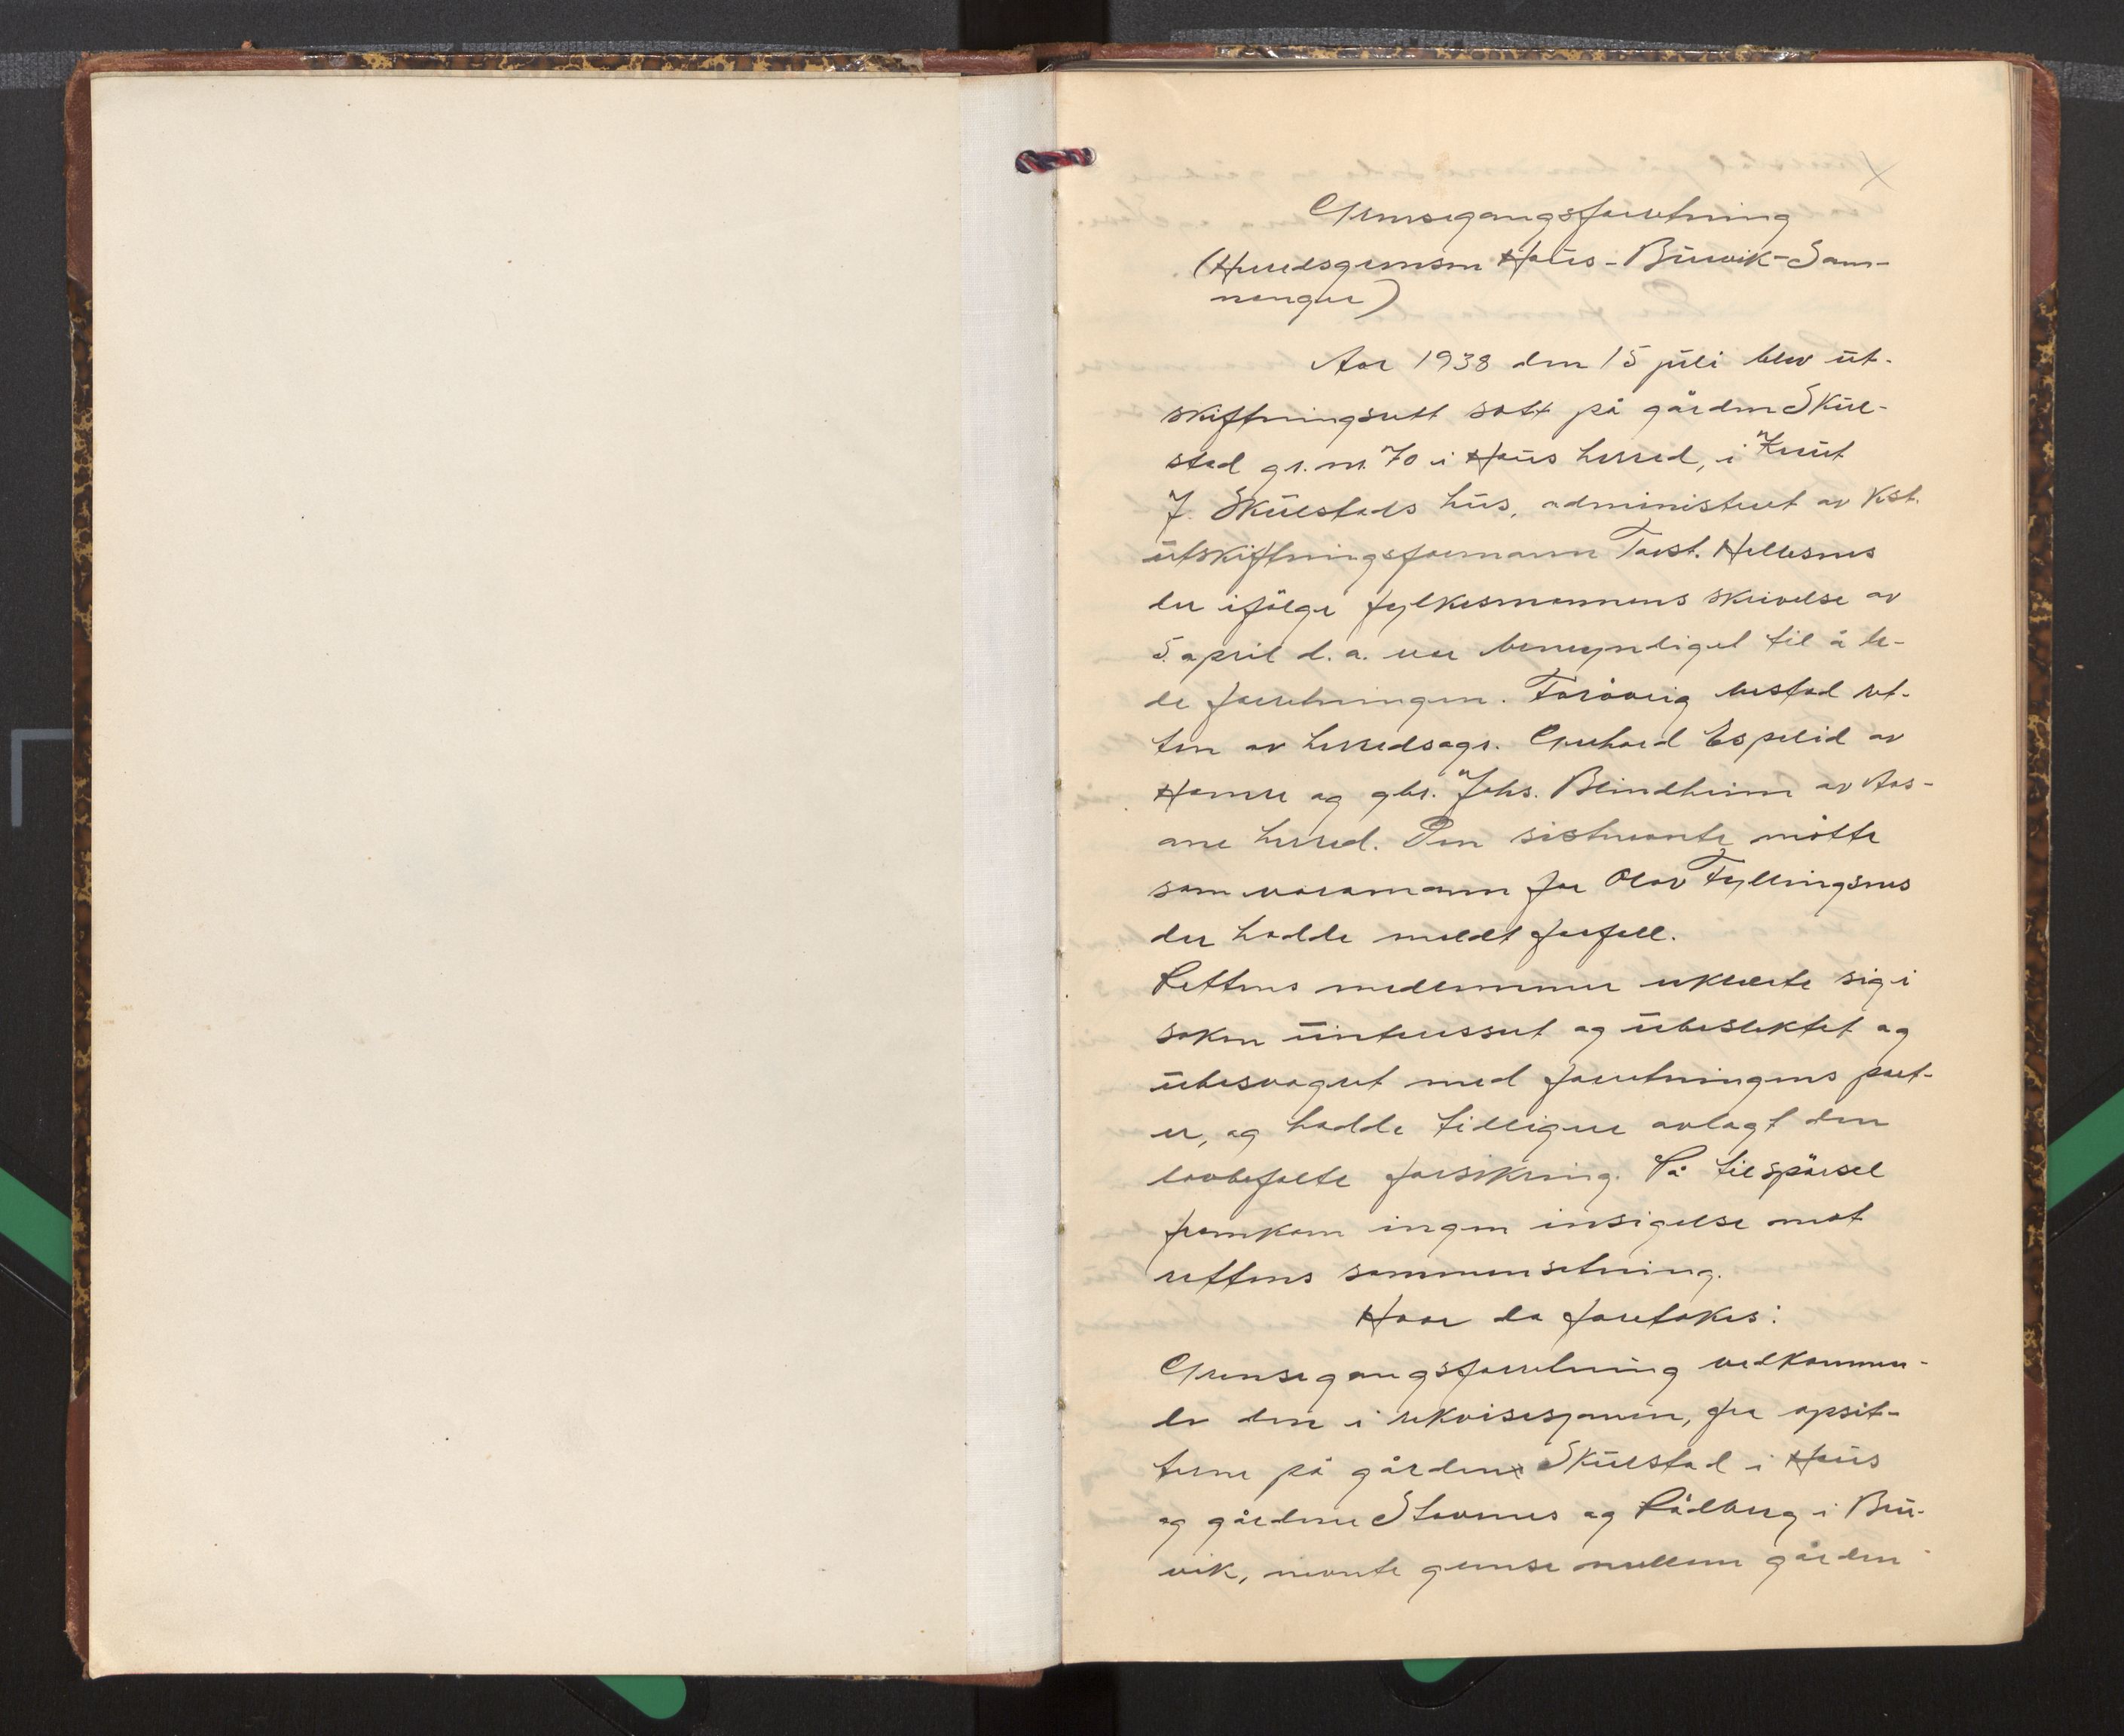 Grensegangsforretning
(Herredsgrensen Haus - Bruvik - Sam-
nanger)
Aar 1938 den 15 juli blev ut-
skiftningsrett satt på gården Skul-
stad gr. nr. 70 i Haus herred, i Knut
J. Skulstads hus, administrert av Kst.
utskiftningsformann Torst. Hellesnes
der ifölge fylkesmannens skrivelse av
5. april d. a. var bemyndiget til å le-
de forretningen. Forövrig bestod ret-
ten av herredsagr. Gerhard Espelid av
Hamre og gbr. Johs. Blindheim av Aas-
ane herred. Den sistnevnte mötte
som varamann for Olav Fyllingsnes
der hadde meldt forfall.
Rettens medlemmer erklærte sig i
saken uinteressert og ubeslektet og
ubesvogret med forretningens part-
er, og hadde tilligere avlagt den
lovbefalte forsikring. På tilspörsel
fremkom ingen insigelse mot
rettens sammensetning.
Hvor da foretakes:
Grensegangsforretning vedkommen-
de den i rekvisisjonen, fra opsit-
terne på gården Skulstad i Haus
og gårdene Stavenes og Rådberg i Bru-
vik, nevnte grense mellem gården